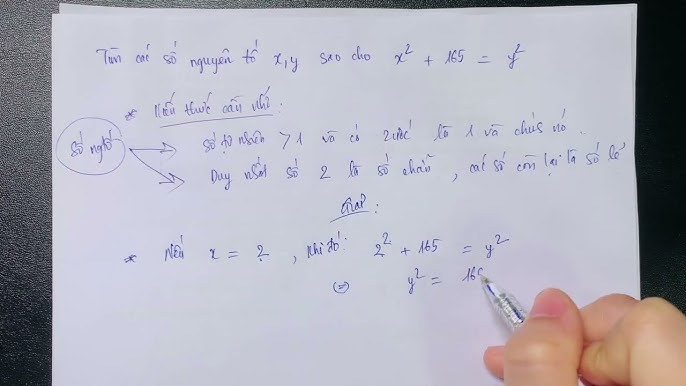 Tìm các số nguyên tố x, y sao cho x² + 165 = y²
* Kiến thức cần nhớ:
Số ngtố
Số tự nhiên > 1 và có 2 ước là 1 và chính nó.
Duy nhất số 2 là số chẵn, các số còn lại là số lẻ
Giải:
* Nếu x = 2, khi đó: 2² + 165 = y²
⇔ y² = 16